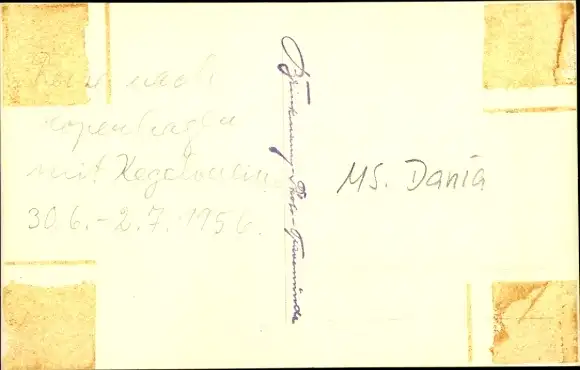 Reise nach
Kopenhagen
mit Kegelverein
30.6.-2.7.1956.
Photo-Travemünde
MS. Dania